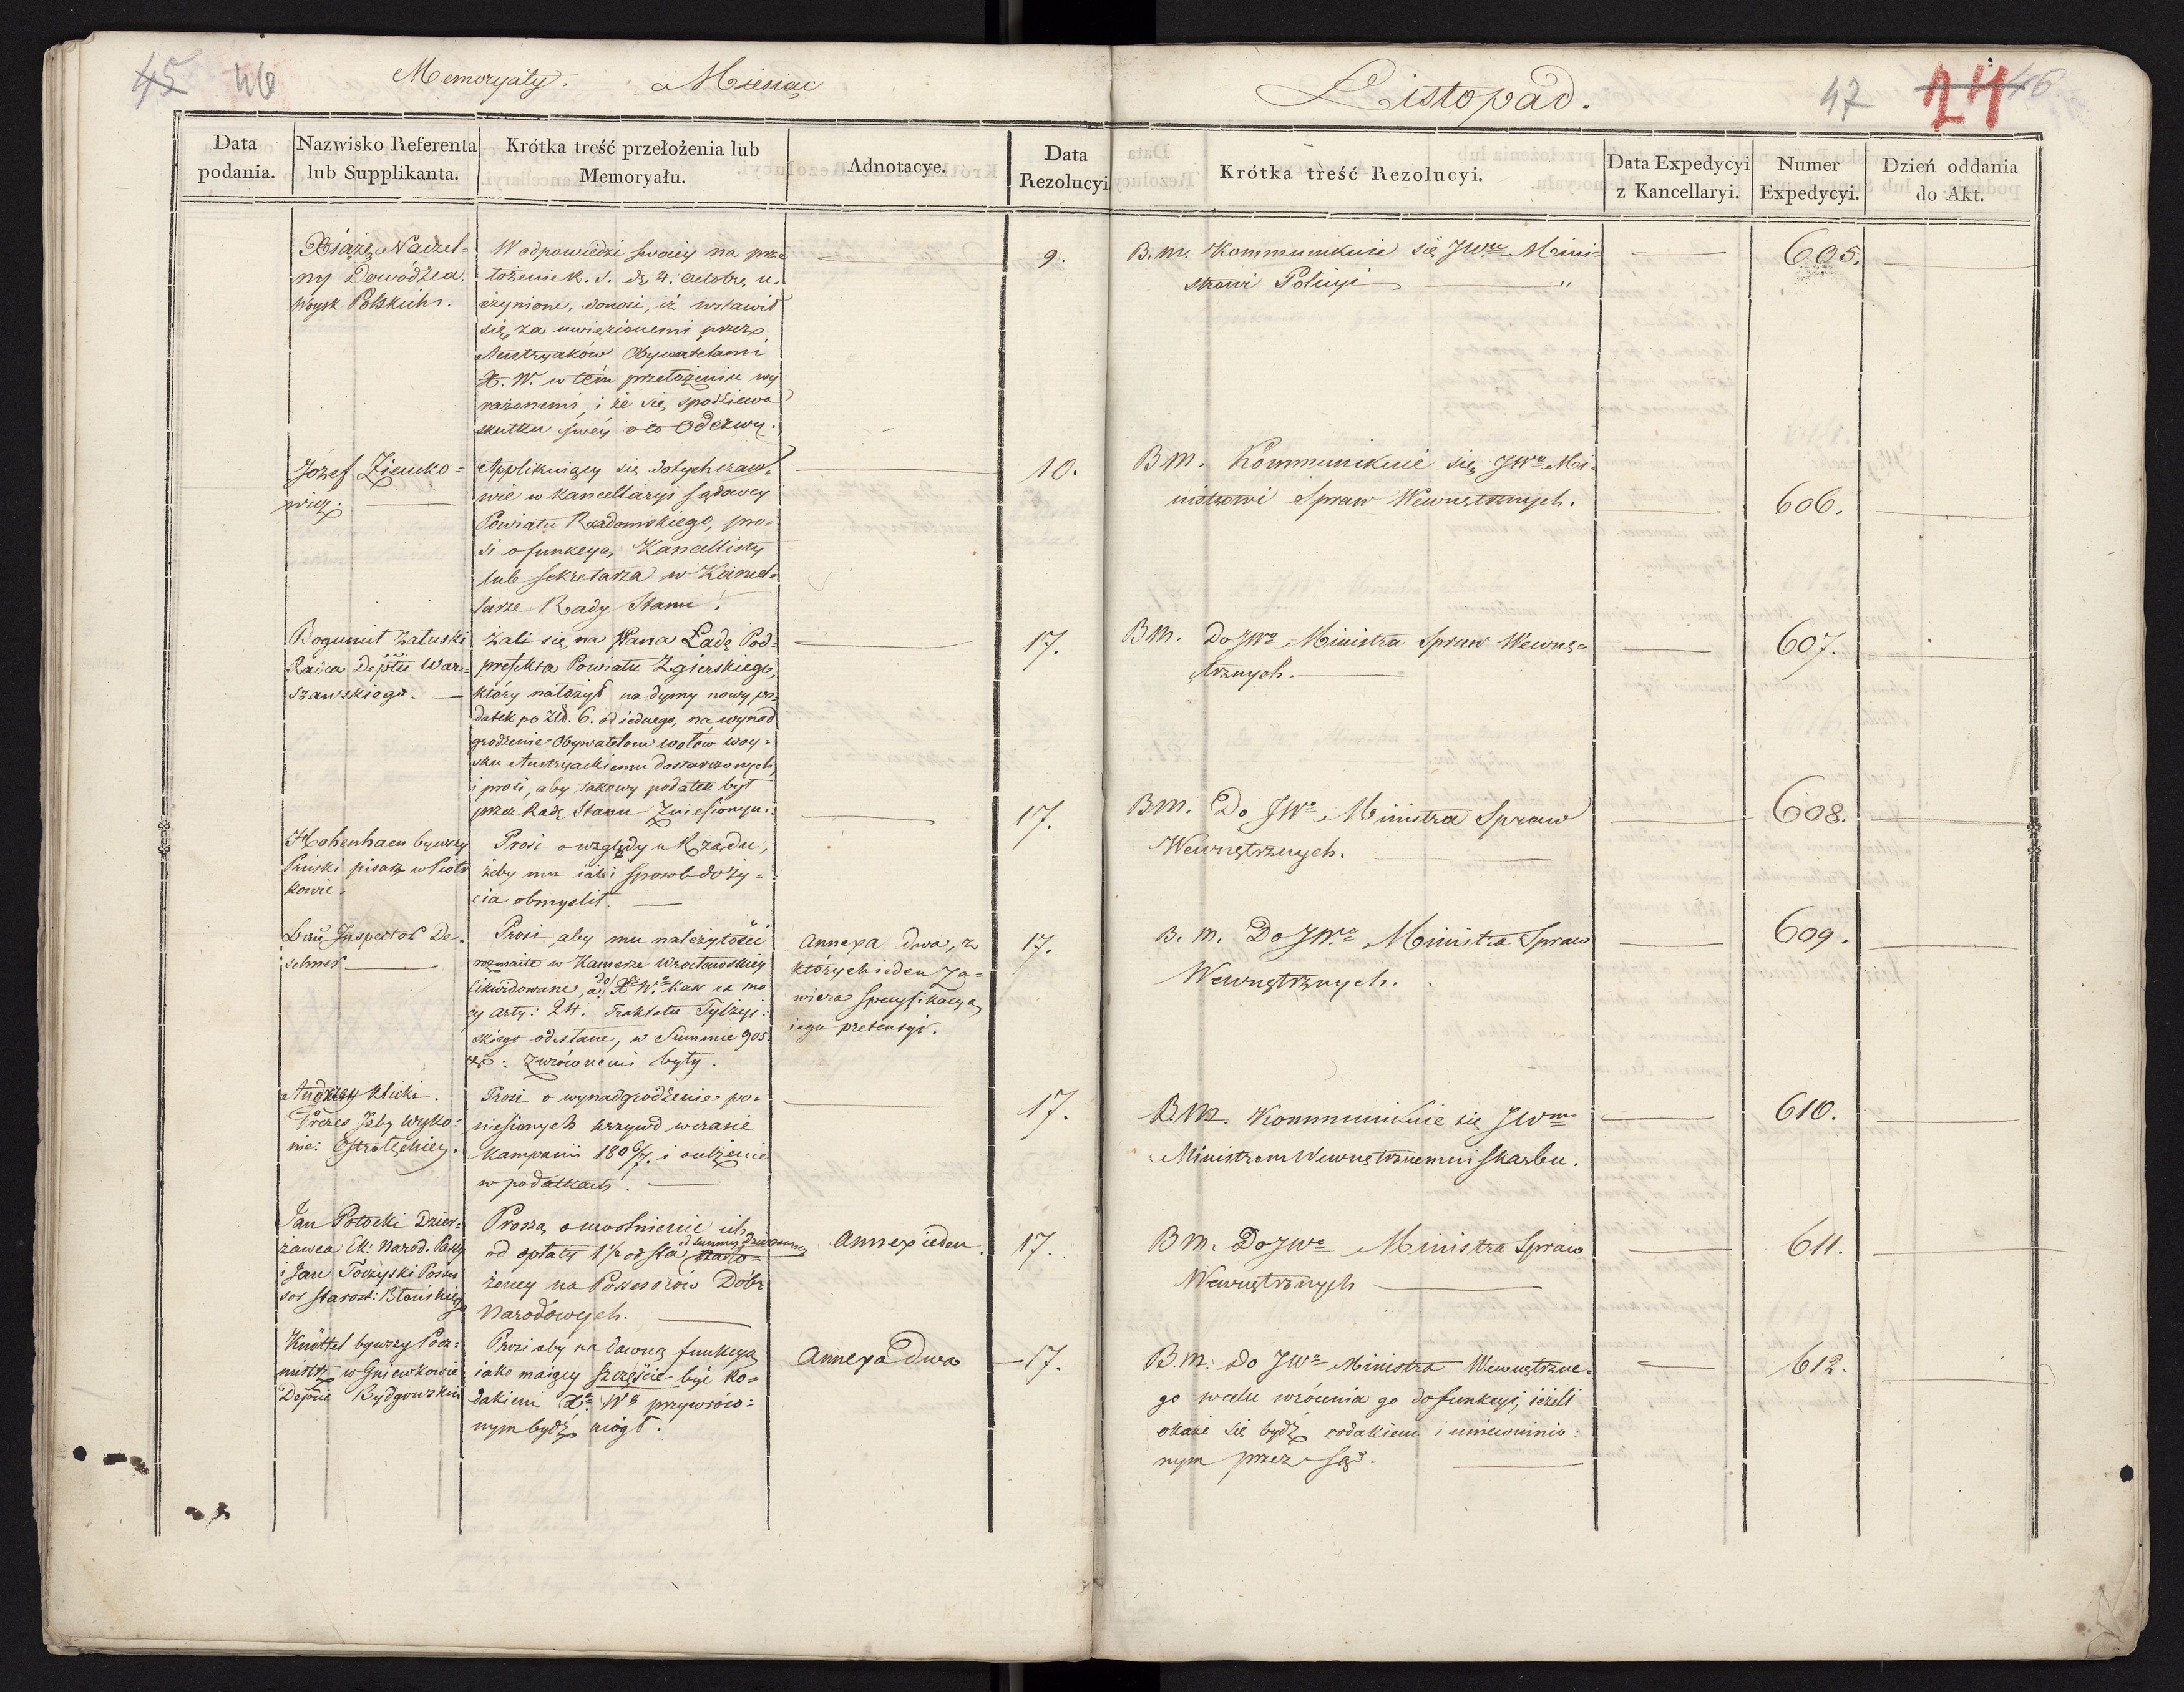 45 46 Memoryały. Miesiąc Listopad. 47 24 46
Data podania.
Nazwisko Referenta lub Supplikanta.
Krótka treść przełożenia lub Memoryału.
Adnotacye.
Data Rezolucyi
Krótka treść Rezolucyi.
Data Expedycyi z Kancellaryi.
Numer Expedycyi.
Dzień oddania do Akt.
Xiążę Naczel-
ny Dowódzca
Woysk Polskich.
W odpowiedzi swoiey na prze
łożenie R. S. dę 4. Octobr. u-
czynione, donosi, iż wstawił
się za uwięzionemi przez
Austryaków Obywatelami
X. W. w tém przełożeniu wy
rażonemi, i że się spodziewa
skutku swéy Odezwy.
9.
B. m. Kommunikuie się JWmu Mini-
strowi Policyi "
605.
Józef Ziemko-
wicz.
Applikuiący się dotychczaso-
wie w kancellaryi sądowey
Powiatu Radomskiego, pro-
si o funkcyą Kancellisty
lub sekretarza w Kancel-
larze Rady Stanu.
10.
B m. Kommunikuie się JWmu Mi-
nistrowi Spraw Wewnętrznych.
606.
Bogumił Załuski
Radca Deptu War-
szawskiego.
Żali się na Pana Ładę Pod-
prefekta Powiatu Zgierskiego,
który nałożył na dymy nowy po-
datek po Złd. 6. od iednego, na wynad
grodzenie Obywatelom wołów woy-
sku Austryackiemu dostarczonych,
i prosi, aby takowy podatek był
przez Radę Stanu Zniesionym.
17.
B m. Do JWo Ministra Spraw Wewnę-
trznych.
607.
Hohenhaen bywszy
Pruski pisarz w Piotr
kowie.
Prosi o względy u Rządu,
żeby mu iaki sposob doży-
cia obmyślił.
17.
B m. Do JWo Ministra Spraw
Wewnętrznych.
608.
Bau Inspector De-
schner
Prosi, aby mu należytości
rozmaite w Kamerze Wrocławskiey
likwidowane, a do Xa Wo kas na mo
cy arty: 24. Traktatu Tylżyi:
skiego odesłane, w Summie 905.
: Zwróconemi były.
Annexa dwa, z
których ieden Za-
wiera specyfikacyą
iego pretensyi.
17.
B. m. Do JWo Ministra Spraw
Wewnętrznych.
609.
Andrzey Klicki.
Prezes Izby Wyko-
nie: Ostrołęckiey.
Prosi o wynadgrodzenie po-
niesionych krzywd wczasie
Kampanii 1806/7. i o ulżenie
w podatkach.
17.
B m. Kommunikuie się JWm
Ministrom Wewnętrznemu i skarbu.
610.
Jan Potocki Dzier-
żawca Ek: Narod.
i Jan Toczyski Posses
sor Starost: Błońskiego
Proszą o uwolnienie ich
od opłaty 1½ od sta od summy Dzierżawney nało-
żoney na Possessorów Dóbr
Narodowych.
Annex ieden.
17.
B m. Do JWo Ministra Spraw
Wewnętrznych
611.
Knöttel bywszy Pocz-
mistrz w Gniewkowie
Depcie Bydgowskim
Prosi aby na dawną funkcyą
iako maiący szczęście być Ro-
dakiem Xa Wo przywróco-
nym bydź mógł.
Annexa Dwa
17.
B. m. do JWo Ministra Wewnętrzne-
go w celu wrócenia go do funkcyi, ieżeli
okaże się bydź rodakiem i uniewinnio-
nym przez Sąd.
612.